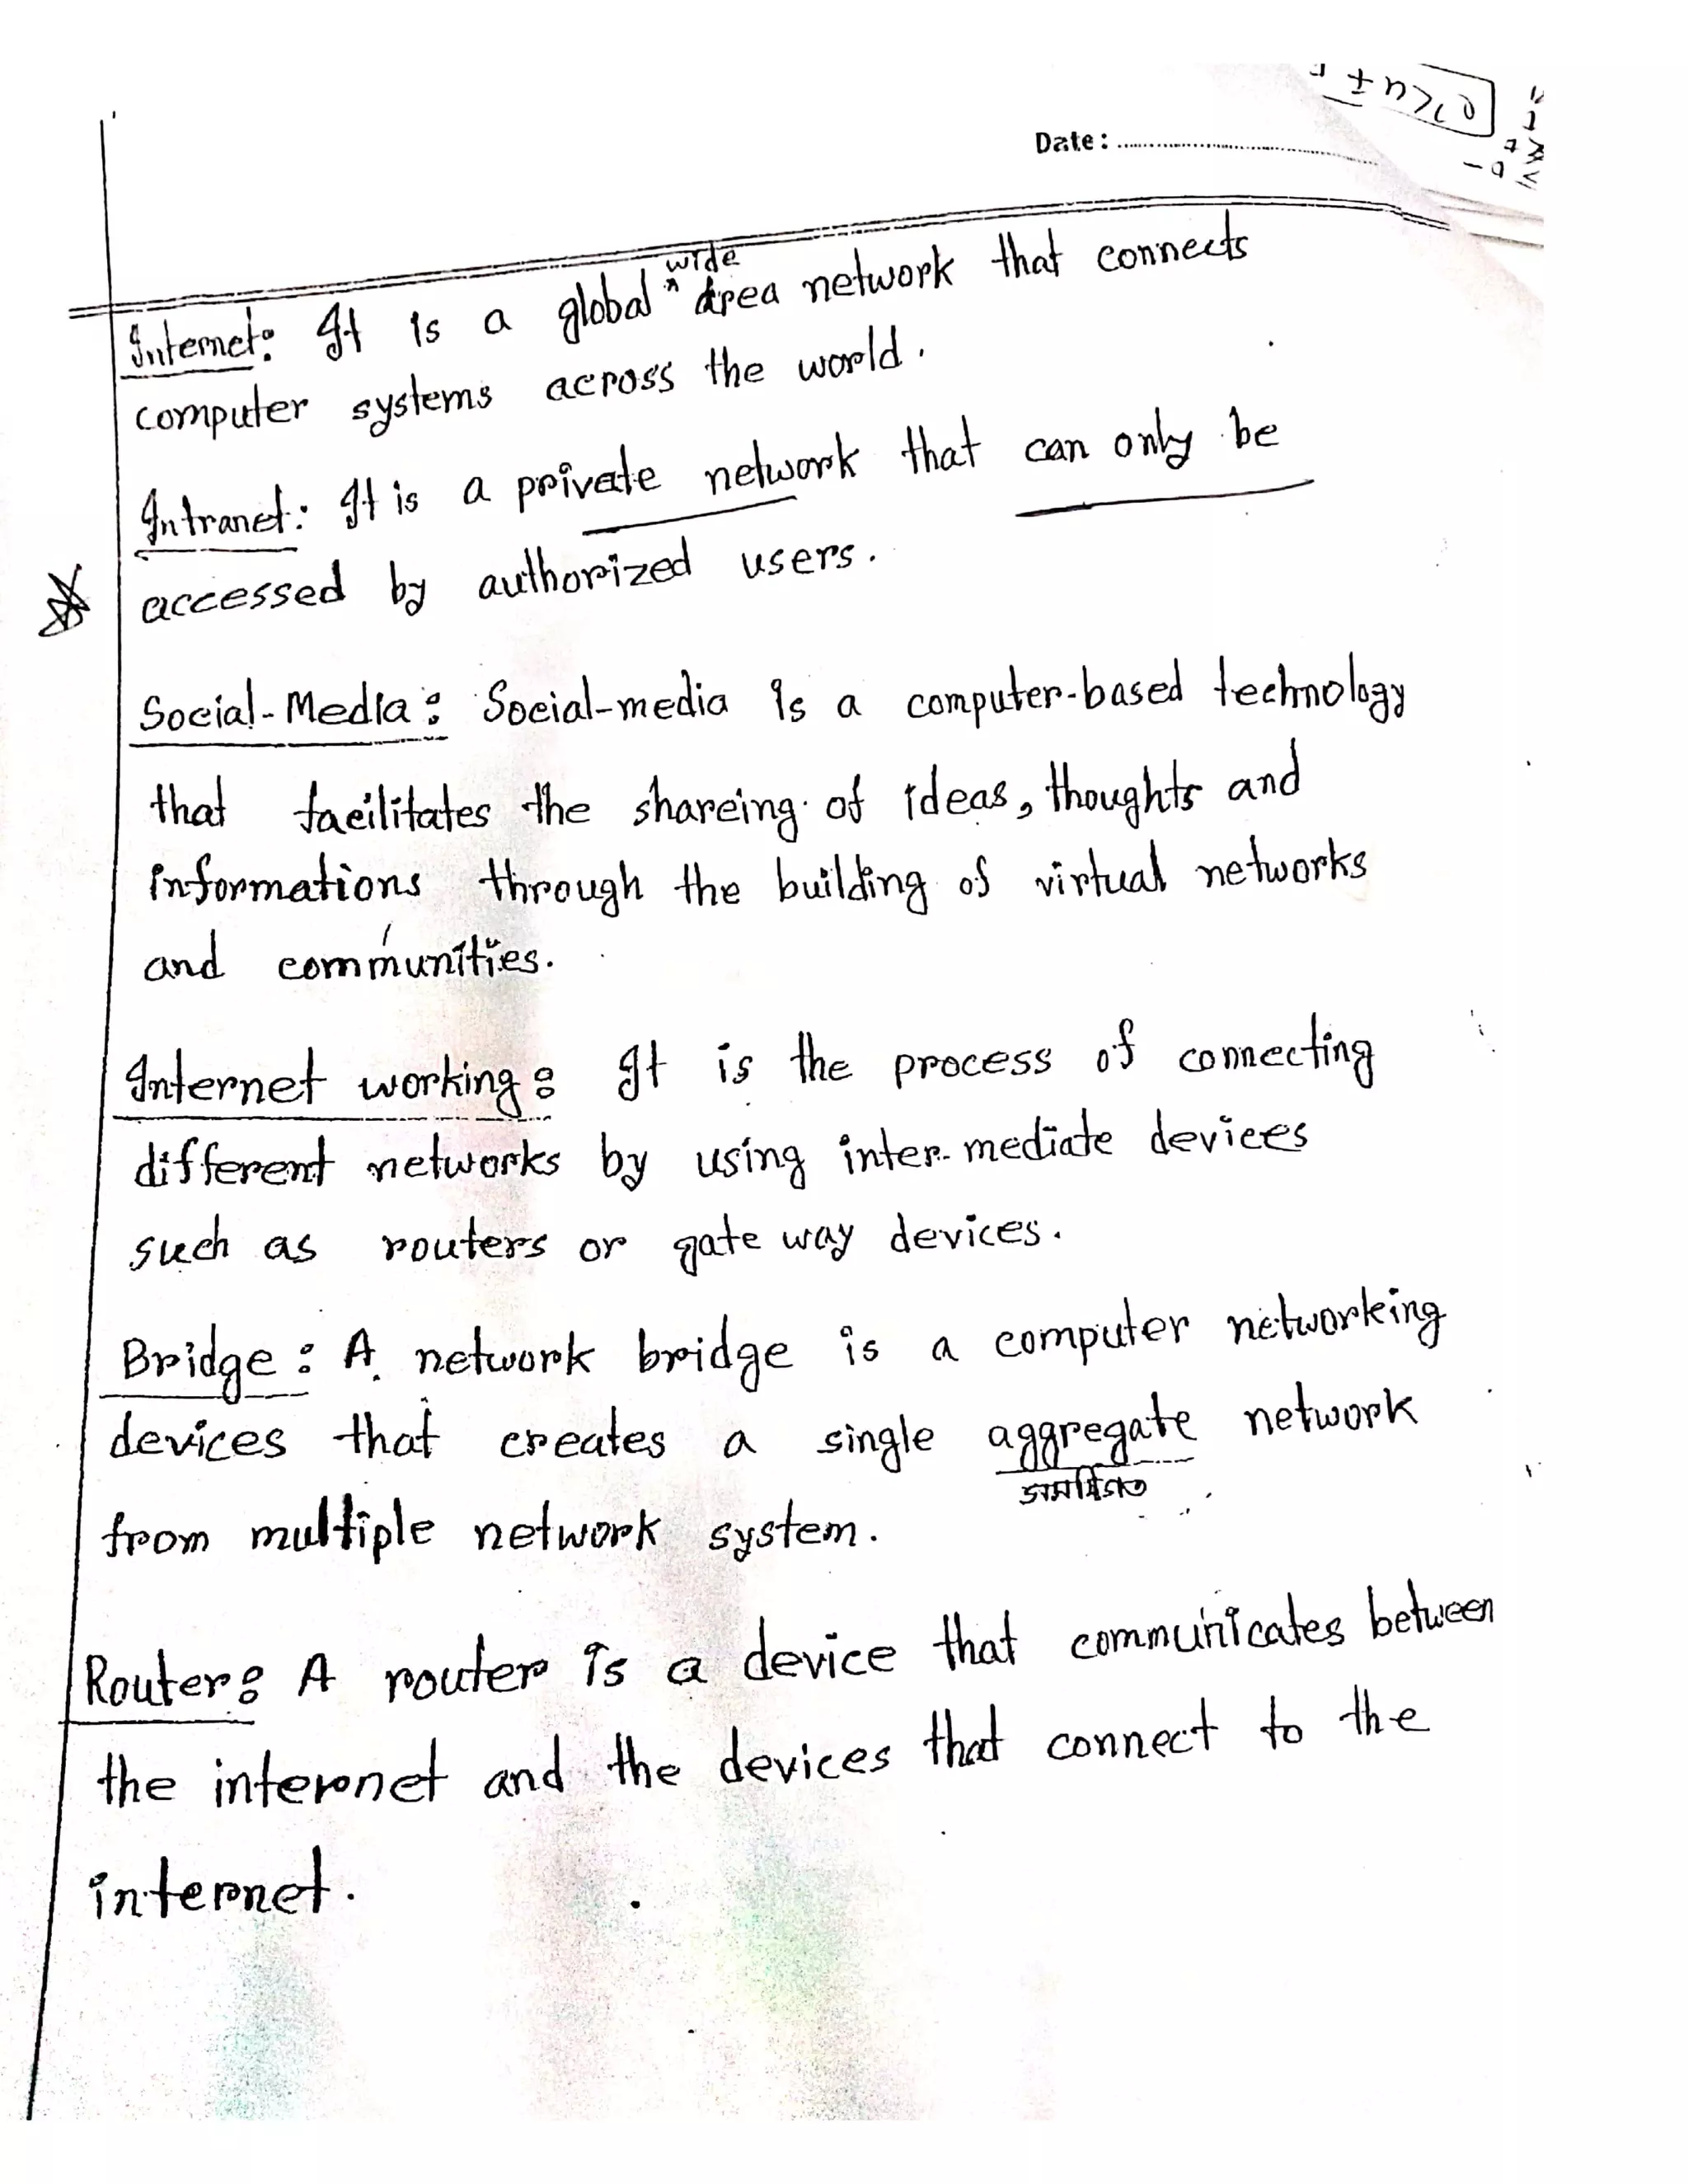 Date:
wide
Internet: It is a global ^ area network that connects
computer systems across the world.
Intranet: It is a private network that can only be
accessed by authorized users.
Social-Media: Social-media is a computer-based technology
that facilitates the shareing of ideas, thoughts and
informations through the building of virtual networks
and communities.
Internet working: It is the process of connecting
different networks by using inter-mediate devices
such as routers or gate way devices.
Bridge: A network bridge is a computer networking
devices that creates a single aggregate network
from multiple network system.
Router: A router is a device that communicates between
the internet and the devices that connect to the
internet.